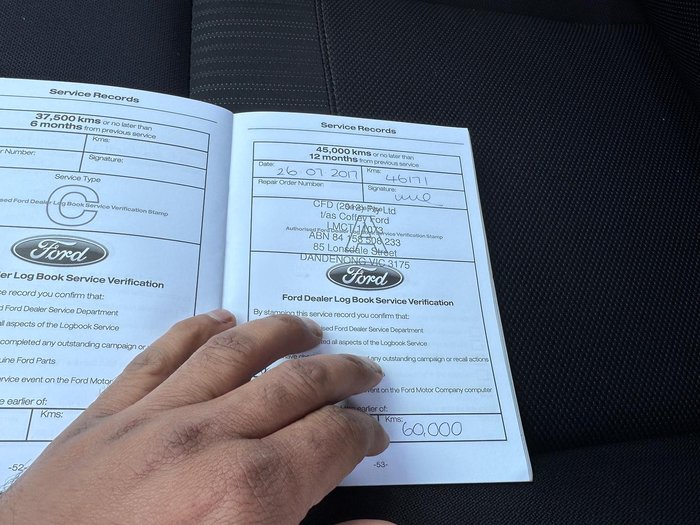 Service Records
37,500 kms or no later than
6 months from previous service
Kms:
Number:
Signature:
Service Type
C
Ford Dealer Log Book Service Verification Stamp
Ford
Log Book Service Verification
service record you confirm that:
Ford Dealer Service Department
all aspects of the Logbook Service
completed any outstanding campaign or
Ford Parts
service event on the Ford Motor
earlier of:
Kms:
-52-
Service Records
45,000 kms or no later than
12 months from previous service
Date: 26 07 2017 Kms: 46171
Repair Order Number: Signature:
CFD (2012) Pty Ltd
t/as Coffey Ford
LMCT 11073
Authorised Ford Dealer Log Book Service Verification Stamp
ABN 84 156 508 233
85 Lonsdale Street
DANDENONG VIC 3175
Ford
Ford Dealer Log Book Service Verification
By stamping this service record you confirm that:
Ford Dealer Service Department
all aspects of the Logbook Service
any outstanding campaign or recall actions
event on the Ford Motor Company computer
earlier of:
Kms: 60,000
-53-